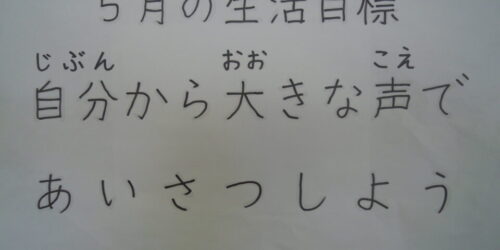 5月の生活目標
じぶん おお こえ
自分から大きな声で
あいさつしよう